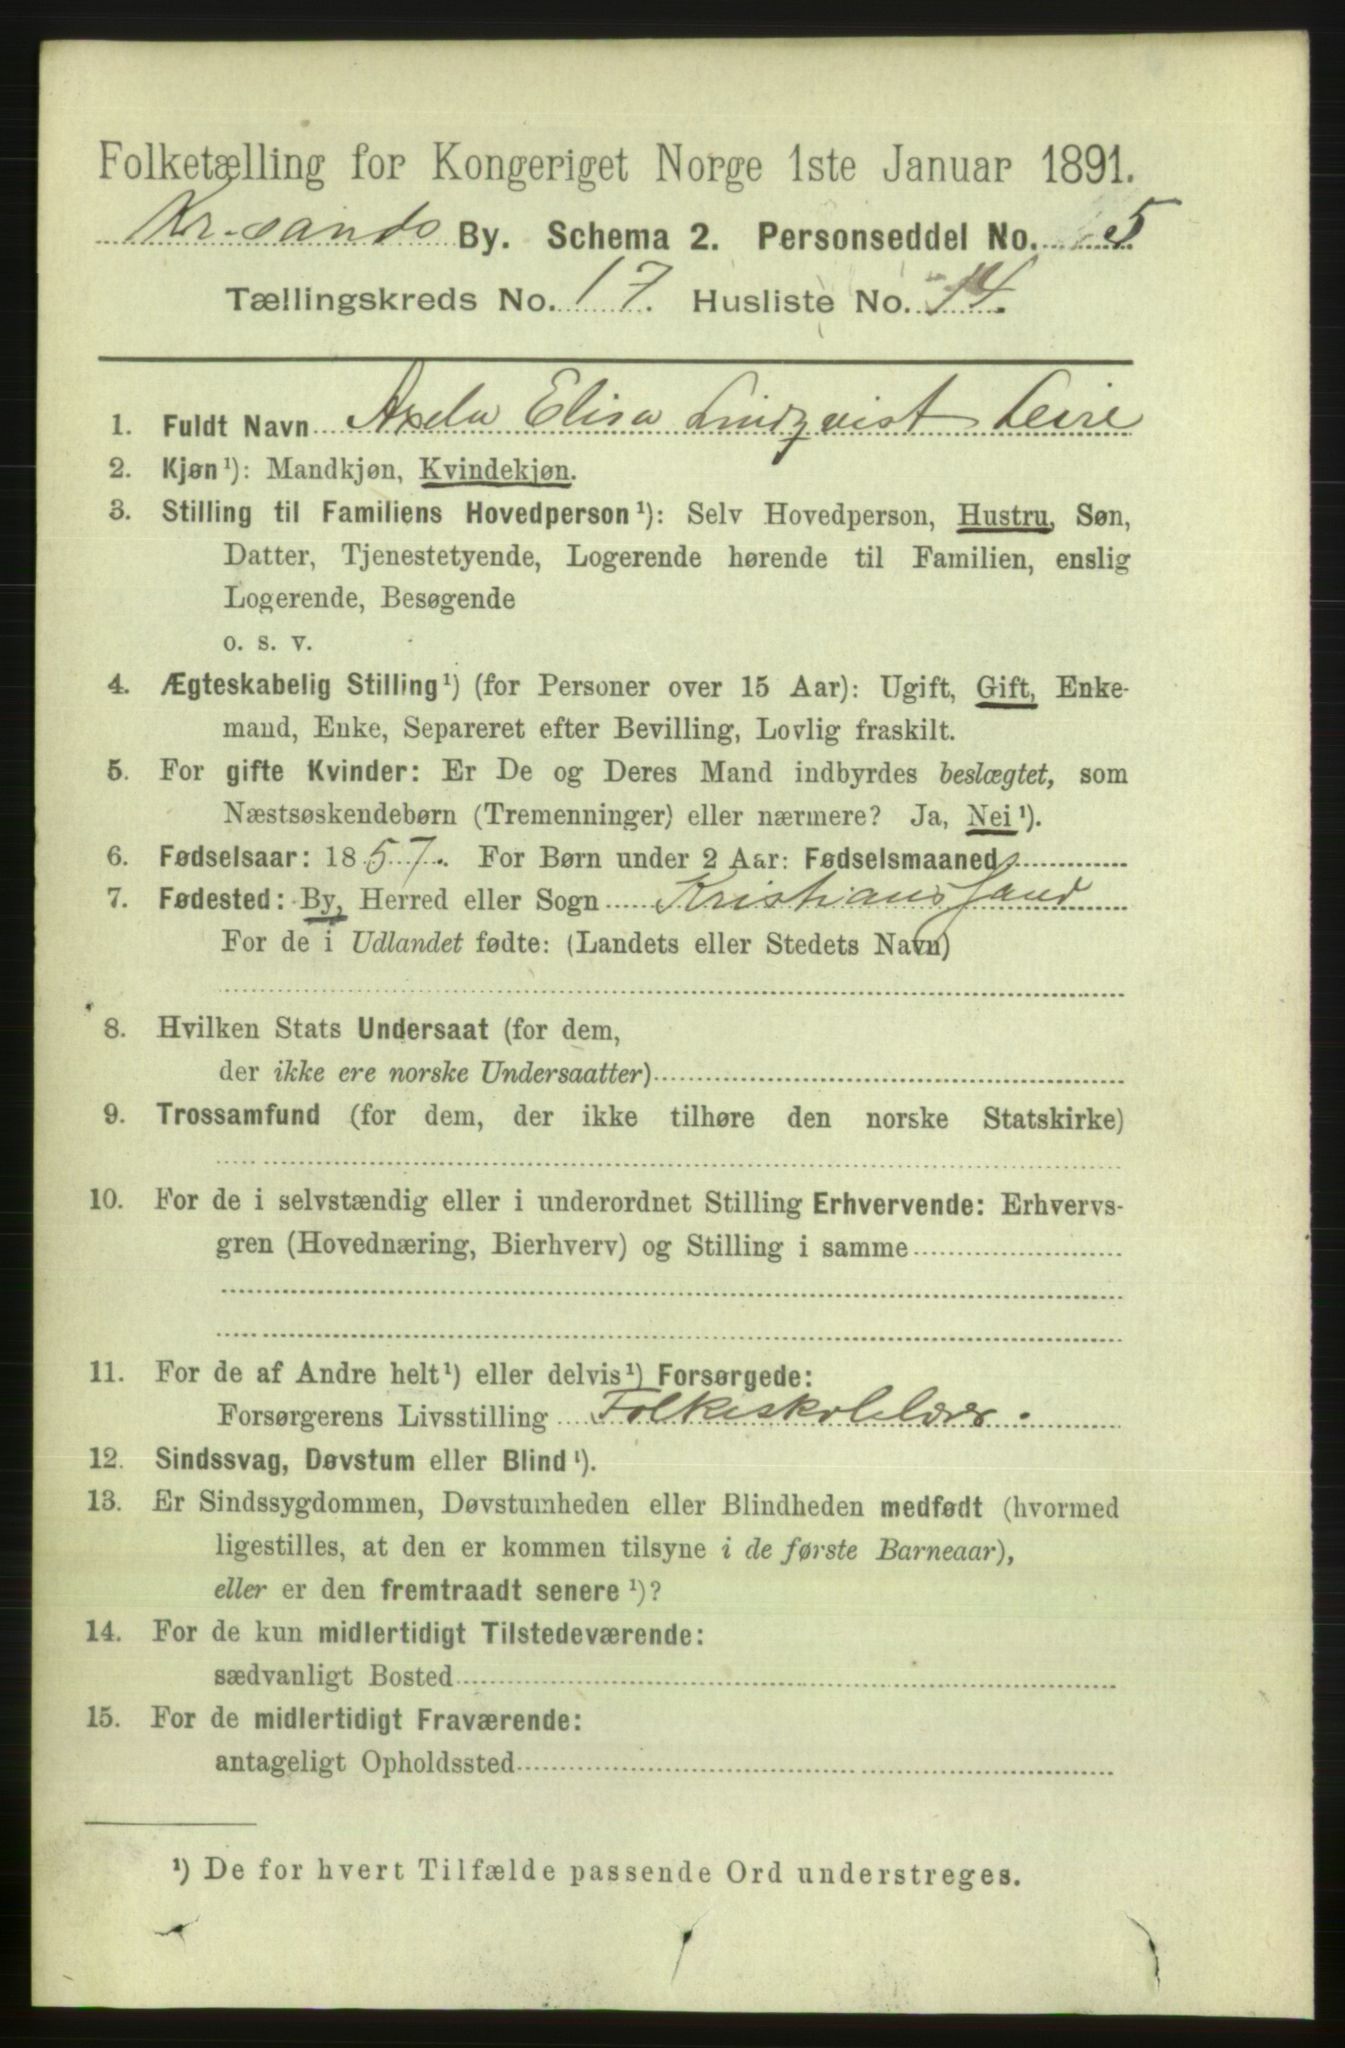 Folketælling for Kongeriget Norge 1ste Januar 1891.
Kr.sands By. Schema 2. Personseddel No. 5
Tællingskreds No. 17. Husliste No. 14.
1. Fuldt Navn Axela Elisa Lindqvist Leire
2. Kjøn¹): Mandkjøn, Kvindekjøn.
3. Stilling til Familiens Hovedperson¹): Selv Hovedperson, Hustru, Søn,
Datter, Tjenestetyende, Logerende hørende til Familien, enslig
Logerende, Besøgende
o. s. v.
4. Ægteskabelig Stilling¹) (for Personer over 15 Aar): Ugift, Gift, Enke-
mand, Enke, Separeret efter Bevilling, Lovlig fraskilt.
5. For gifte Kvinder: Er De og Deres Mand indbyrdes beslægtet, som
Næstsøskendebørn (Tremenninger) eller nærmere? Ja, Nei¹).
6. Fødselsaar: 1857. For Børn under 2 Aar: Fødselsmaaned
7. Fødested: By, Herred eller Sogn Kristianssand
For de i Udlandet fødte: (Landets eller Stedets Navn)
8. Hvilken Stats Undersaat (for dem,
der ikke ere norske Undersaatter)
9. Trossamfund (for dem, der ikke tilhøre den norske Statskirke)
10. For de i selvstændig eller i underordnet Stilling Erhvervende: Erhvervs-
gren (Hovednæring, Bierhverv) og Stilling i samme
11. For de af Andre helt¹) eller delvis¹) Forsørgede:
Forsørgerens Livsstilling Folkeskolelærer.
12. Sindssvag, Døvstum eller Blind¹).
13. Er Sindssygdommen, Døvstumheden eller Blindheden medfødt (hvormed
ligestilles, at den er kommen tilsyne i de første Barneaar),
eller er den fremtraadt senere¹)?
14. For de kun midlertidigt Tilstedeværende:
sædvanligt Bosted
15. For de midlertidigt Fraværende:
antageligt Opholdssted
¹) De for hvert Tilfælde passende Ord understreges.